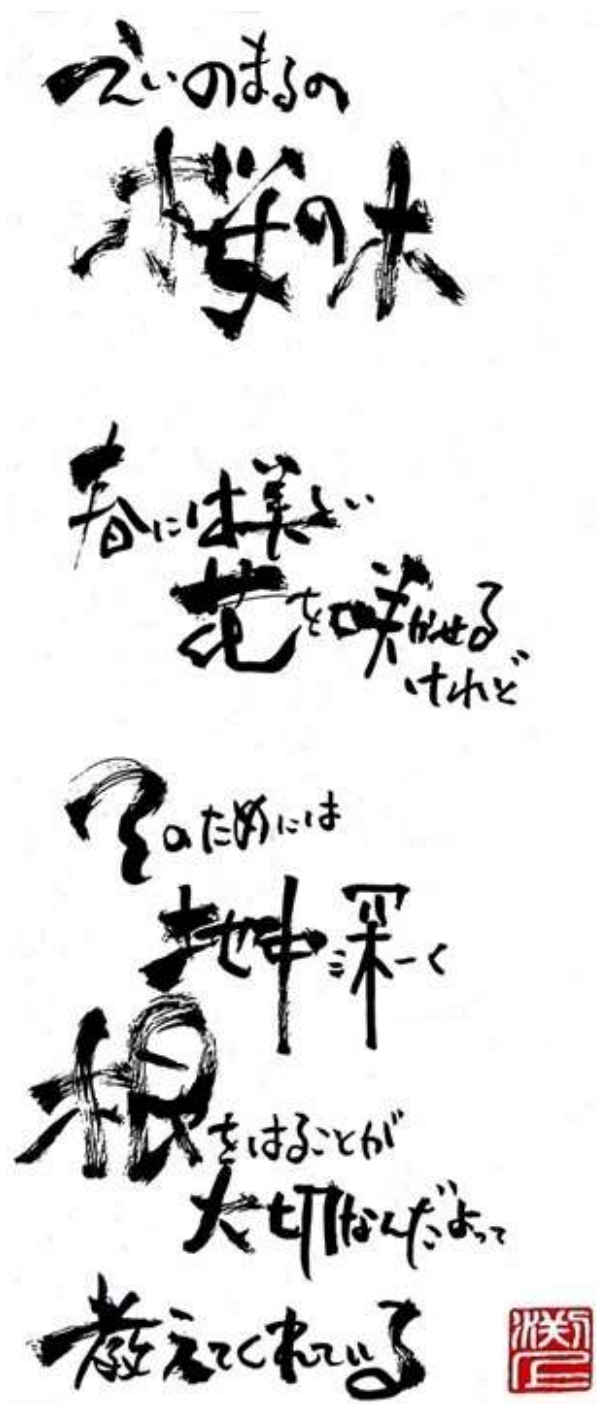 えいのまるの
桜の木
春には美しい
花を咲かせる
けれど
そのためには
地中深ーく
根をはることが
大切なんだよって
教えてくれている